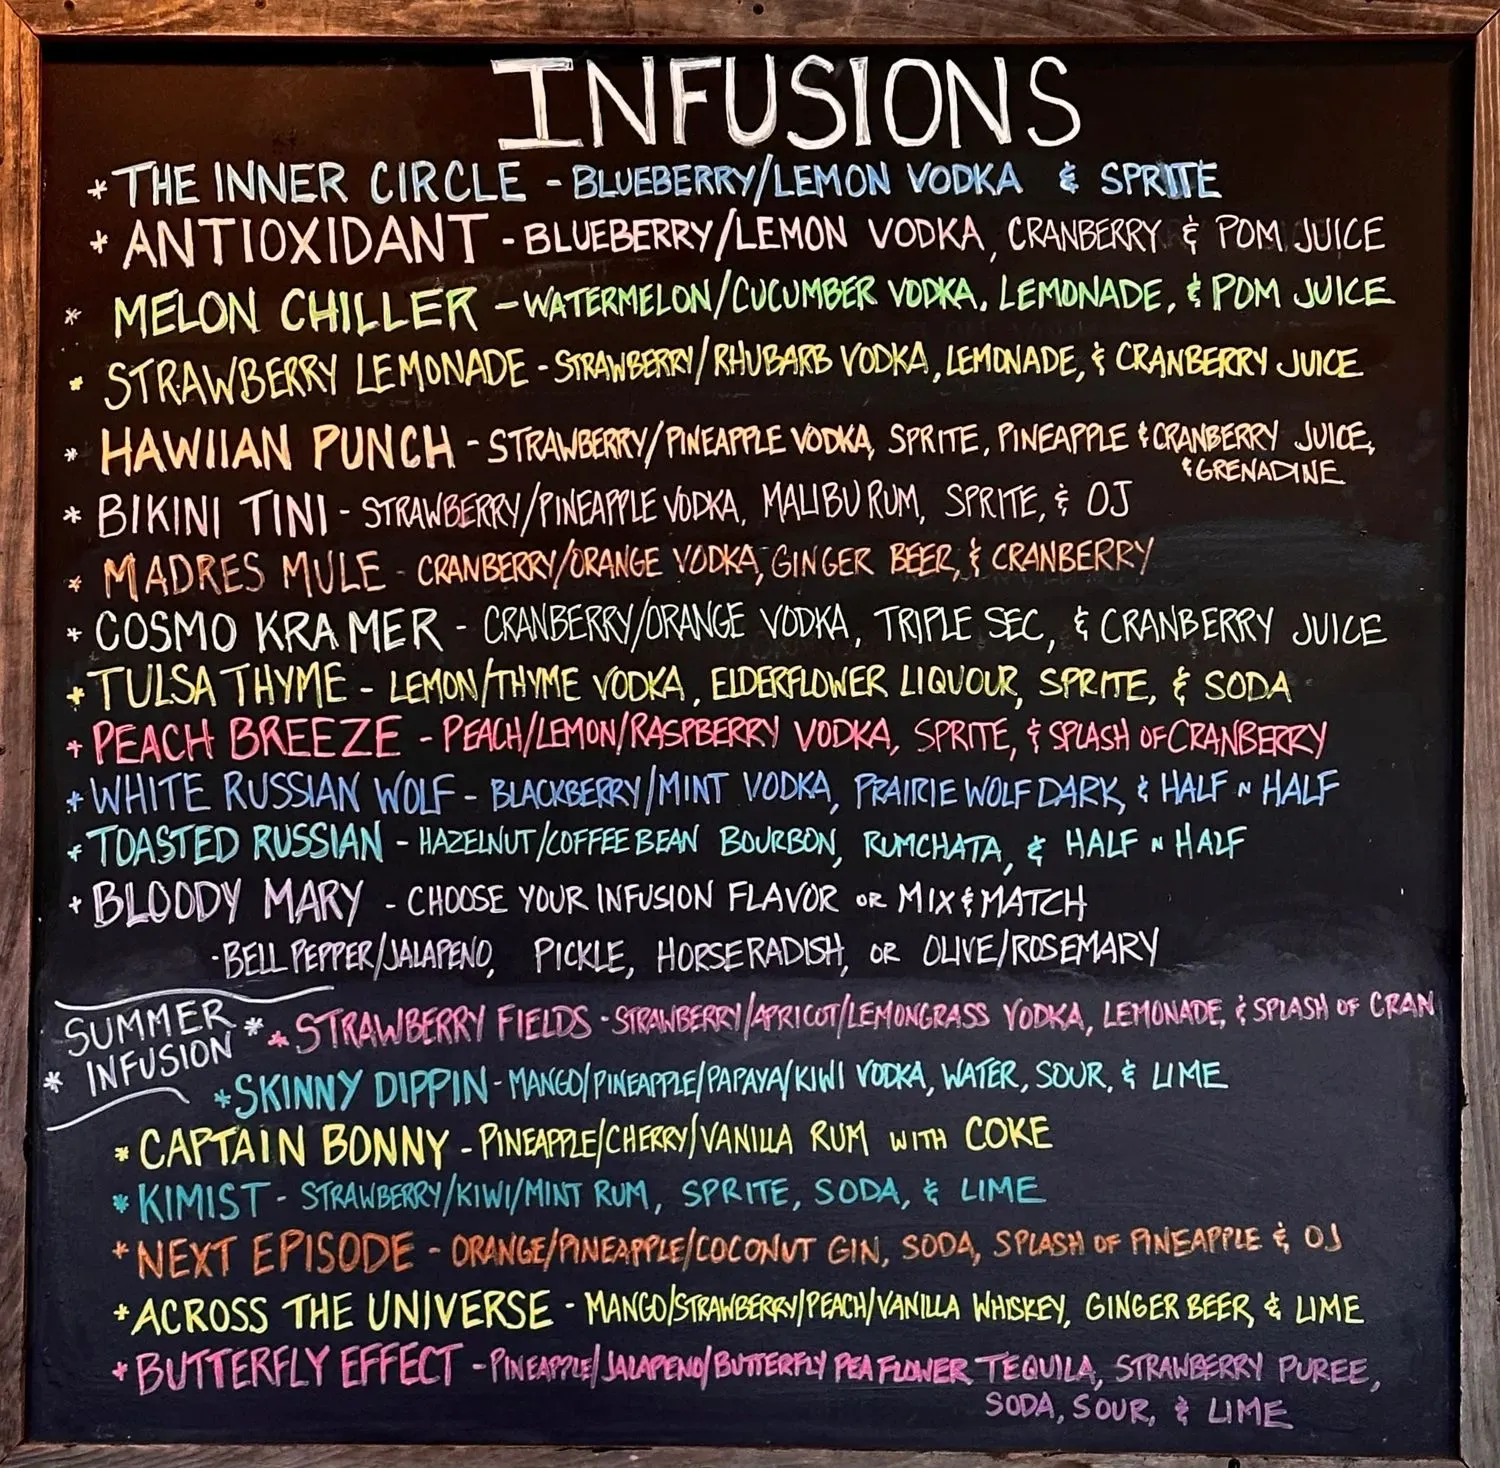 INFUSIONS
* THE INNER CIRCLE - BLUEBERRY/LEMON VODKA & SPRITE
* ANTIOXIDANT - BLUEBERRY/LEMON VODKA, CRANBERRY & POM JUICE
* MELON CHILLER - WATERMELON/CUCUMBER VODKA, LEMONADE, & POM JUICE
* STRAWBERRY LEMONADE - STRAWBERRY/RHUBARB VODKA, LEMONADE, & CRANBERRY JUICE
* HAWIIAN PUNCH - STRAWBERRY/PINEAPPLE VODKA, SPRITE, PINEAPPLE & CRANBERRY JUICE,
& GRENADINE
* BIKINI TINI - STRAWBERRY/PINEAPPLE VODKA, MALIBU RUM, SPRITE, & OJ
* MADRES MULE - CRANBERRY/ORANGE VODKA, GINGER BEER, & CRANBERRY
* COSMO KRAMER - CRANBERRY/ORANGE VODKA, TRIPLE SEC, & CRANBERRY JUICE
* TULSA THYME - LEMON/THYME VODKA, ELDERFLOWER LIQUOUR, SPRITE, & SODA
* PEACH BREEZE - PEACH/LEMON/RASPBERRY VODKA, SPRITE, & SPLASH OF CRANBERRY
* WHITE RUSSIAN WOLF - BLACKBERRY/MINT VODKA, PRAIRIE WOLF DARK, & HALF N HALF
* TOASTED RUSSIAN - HAZELNUT/COFFEE BEAN BOURBON, RUMCHATA, & HALF N HALF
* BLOODY MARY - CHOOSE YOUR INFUSION FLAVOR OR MIX & MATCH
- BELL PEPPER/JALAPENO, PICKLE, HORSERADISH, OR OLIVE/ROSEMARY
* SUMMER INFUSION *
* STRAWBERRY FIELDS - STRAWBERRY/APRICOT/LEMONGRASS VODKA, LEMONADE, & SPLASH OF CRAN
* SKINNY DIPPIN - MANGO/PINEAPPLE/PAPAYA/KIWI VODKA, WATER, SOUR, & LIME
* CAPTAIN BONNY - PINEAPPLE/CHERRY/VANILLA RUM WITH COKE
* KIMIST - STRAWBERRY/KIWI/MINT RUM, SPRITE, SODA, & LIME
* NEXT EPISODE - ORANGE/PINEAPPLE/COCONUT GIN, SODA, SPLASH OF PINEAPPLE & OJ
* ACROSS THE UNIVERSE - MANGO/STRAWBERRY/PEACH/VANILLA WHISKEY, GINGER BEER & LIME
* BUTTERFLY EFFECT - PINEAPPLE/JALAPENO/BUTTERFLY PEA FLOWER TEQUILA, STRAWBERRY PUREE,
SODA, SOUR, & LIME